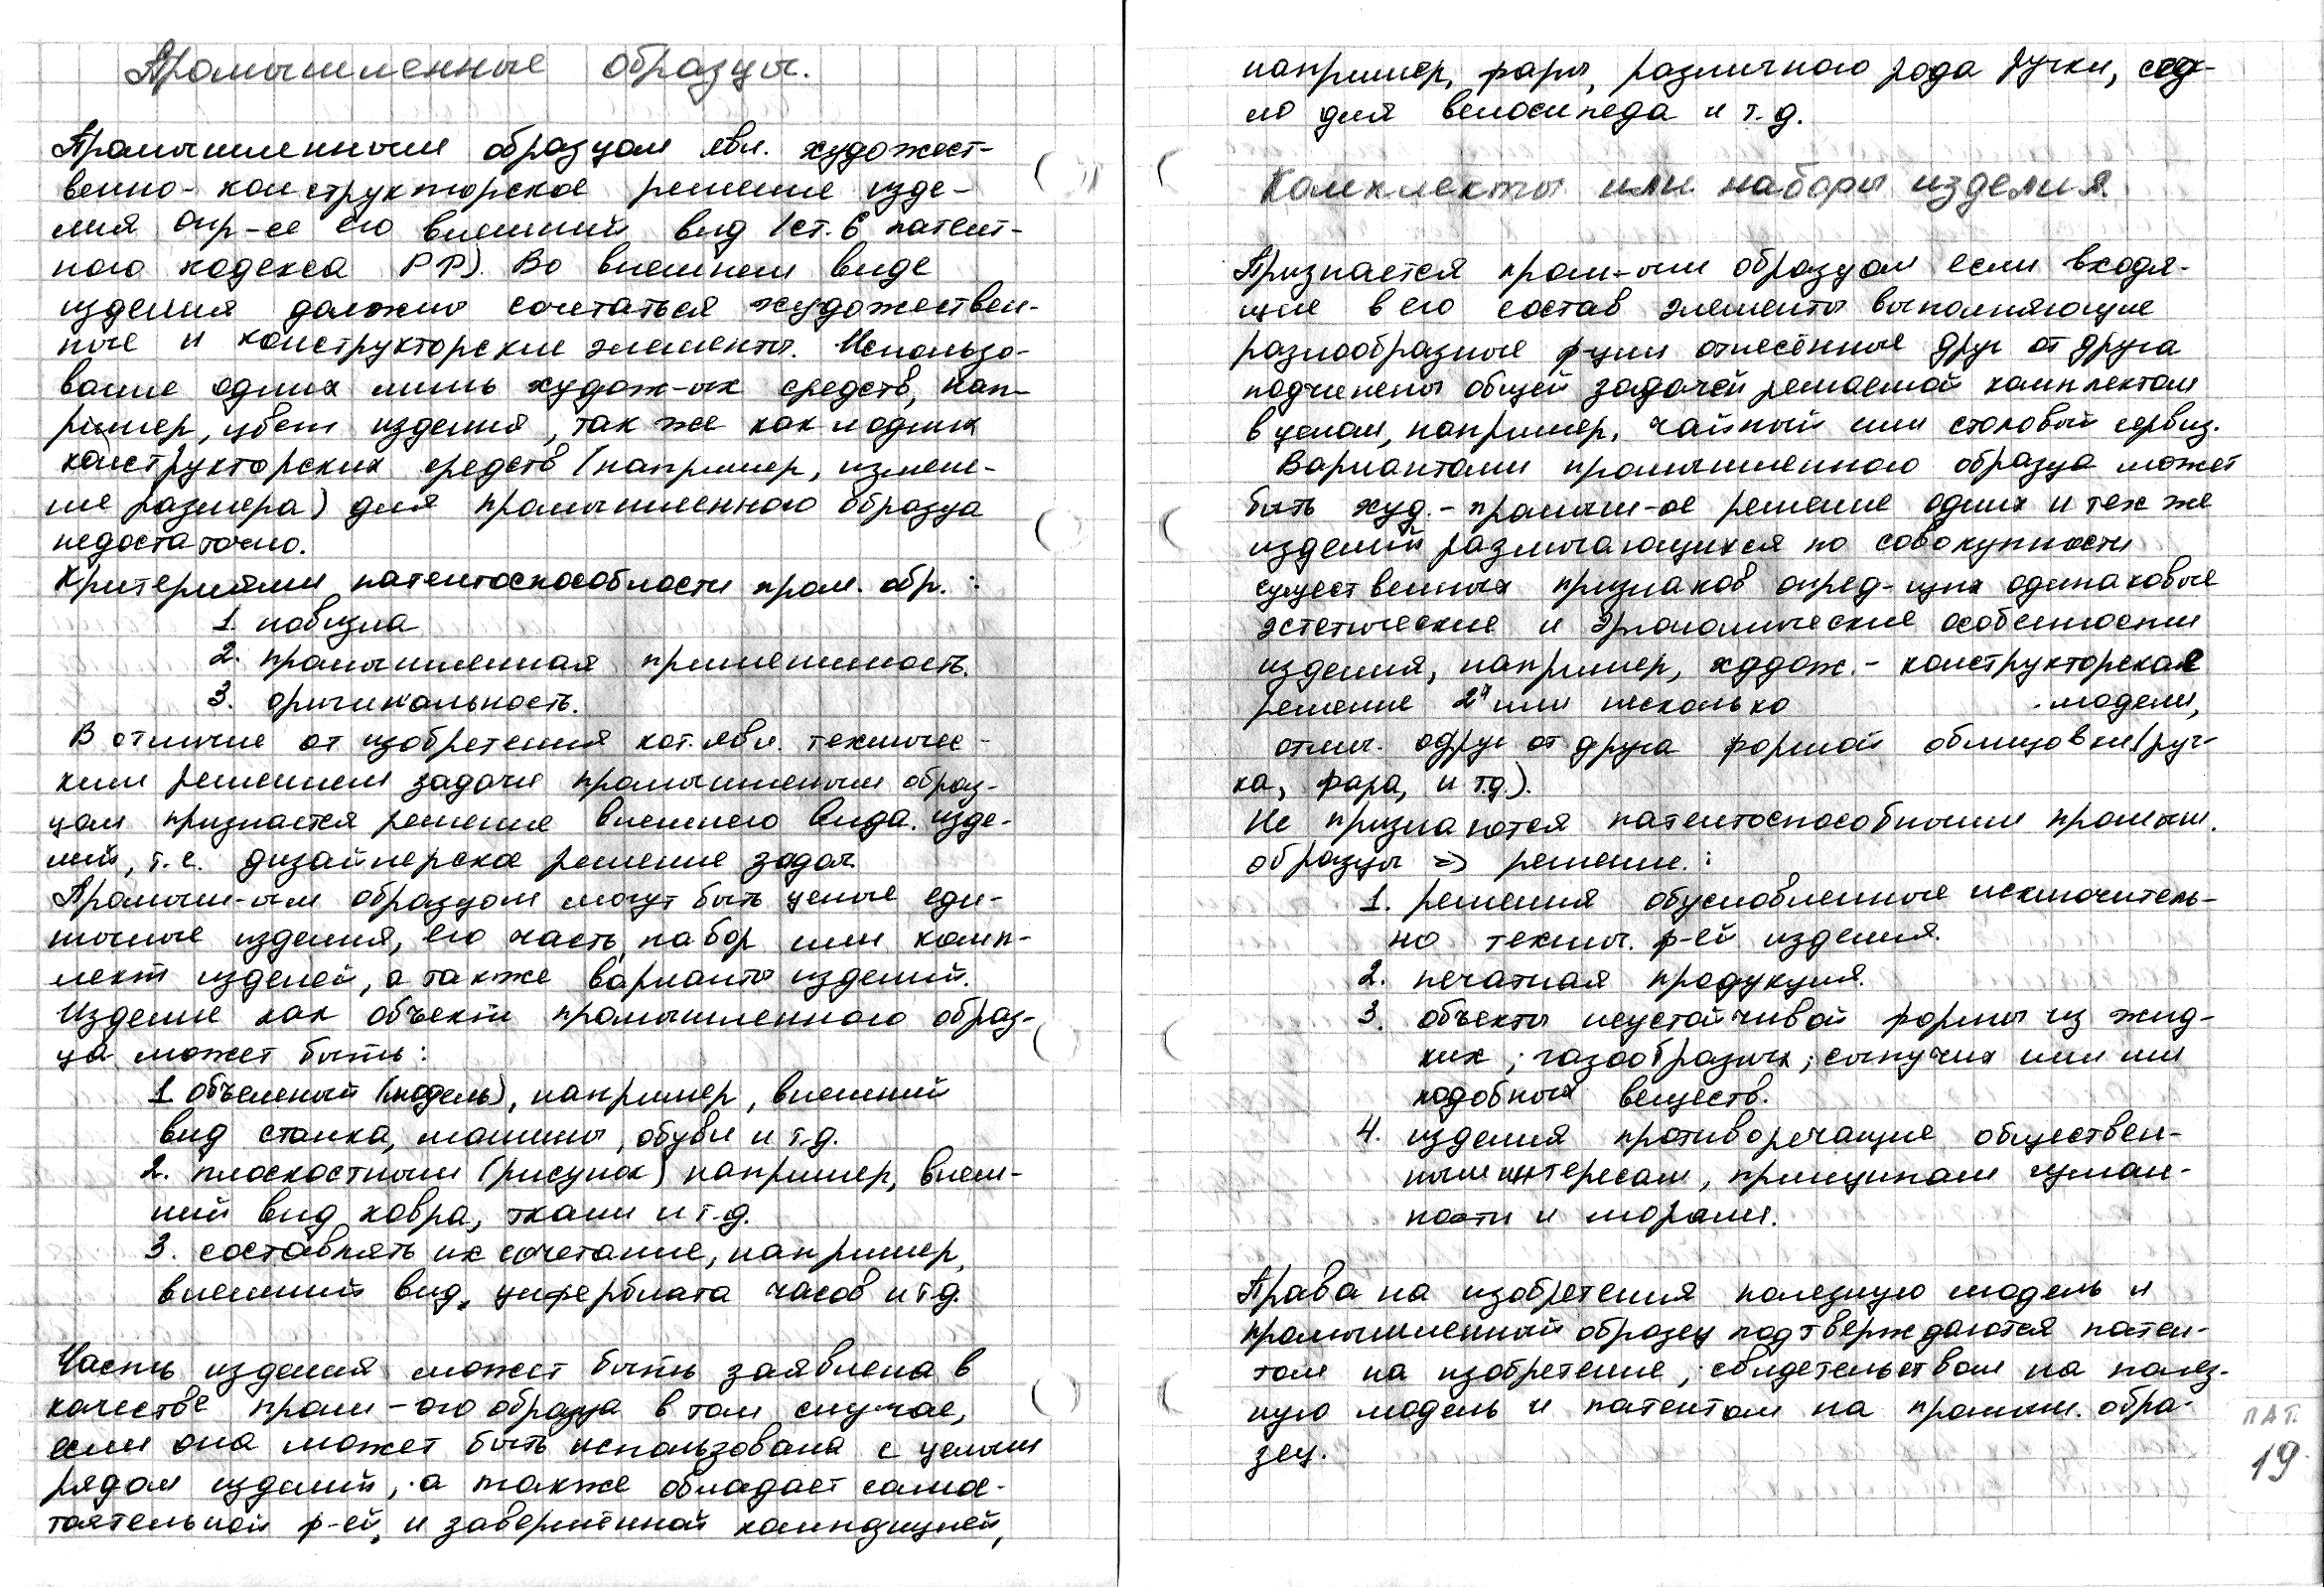 Промышленные образцы.
Промышленным образцом явл. художест-
венно-конструкторское решение изде-
лия опр-ее его внешний вид (ст. 6 патент-
ного кодекса РФ). Во внешнем виде
изделия должно сочетаться художествен-
ные и конструкторские элементы. Использо-
вание одних лишь худож-ых средств, нап-
ример, цвет изделия, так же как и одних
конструкторских средств (например, измене-
ние размера) для промышленного образца
недостаточно.
Критериями патентоспособности пром. обр.:
1. новизна
2. промышленная применимость.
3. оригинальность.
В отличие от изобретения кот. явл. техничес-
ким решением задачи промышленым образ-
цом признается решение внешнего вида изде-
лий, т.е. дизайнерское решение задач.
Промыш-ым образцом могут быть целые еди-
ничные изделия, его часть, набор или комп-
лект изделей, а также варианты изделий.
Изделие как объект промышленного образ-
ца может быть:
1 объемный (модель), например, внешний
вид станка, машины, обуви и т.д.
2. плоскостными (рисунок) например, внеш-
ний вид ковра, ткани и т.д.
3. составлять их сочетание, например,
внешний вид, циферблата часов и т д.
Часть изделия может быть заявлена в
качестве пром-ого образца в том случае,
если она может быть использована с целым
рядом изделий, а также обладает самос-
тоятельной ф-ей, и завершённой композицией,
например, фары, различного рода ручки, сед-
ло для велосипеда и т.д.
Комплекты или наборы изделия.
Признается пром-ым образцом если входя-
щие в его состав элементы выполняющие
разнообразные ф-ции отнесённые друг от друга
подчинены общей задачей решаемой комплектом
в целом, например, чайный или столовый сервиз.
Вариантами промышленного образца может
быть худ.-промыш-ое решение одних и тех же
изделий различающихся по совокупности
существенных признаков опред-щих одинаковые
эстетические и эргономические особенности
изделия, например, худож.-конструкторское
решение 2х или несколько модели,
отлич. друг от друга формой облицовки (руч-
ка, фара, и т.д.).
Не признаются патентоспособными промыш.
образцы => решение.:
1. решения обусловленные исключитель-
но технич. ф-ей изделия.
2. печатная продукция.
3. объекты неустойчивой формы из жид-
ких; газообразных; сыпучих или им
подобных веществ.
4. изделия противоречащие обществен-
ным интересам, принципам гуман-
ности и морали.
Права на изобретения полезную модель и
промышленный образец подтверждаются патен-
том на изобретение, свидетельством на полез-
ную модель и патентом на промыш. обра-
зец.
ПАТ.
19